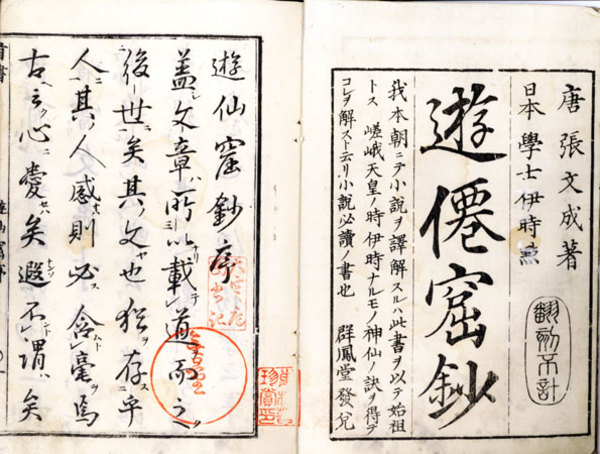 唐張文成著
日本學士伊時
翻刻不許
遊僊窟鈔
我本朝ニテ小説ヲ譯解スルハ此書ヲ以テ始祖
トス嵯峨天皇ノ時伊時ナルモノ神仙ノ訣ヲ得テ
コレヲ解スト云リ小説必讀ノ書也 群鳳堂發兌
遊仙窟鈔序
蓋文章ハ所以載道而之
後世ニ矣其ノ文也猶ヲ存ス乎
人ニ其ノ人感則必ス含毫ヲ焉
古心ニ愛矣遐不謂ハ矣